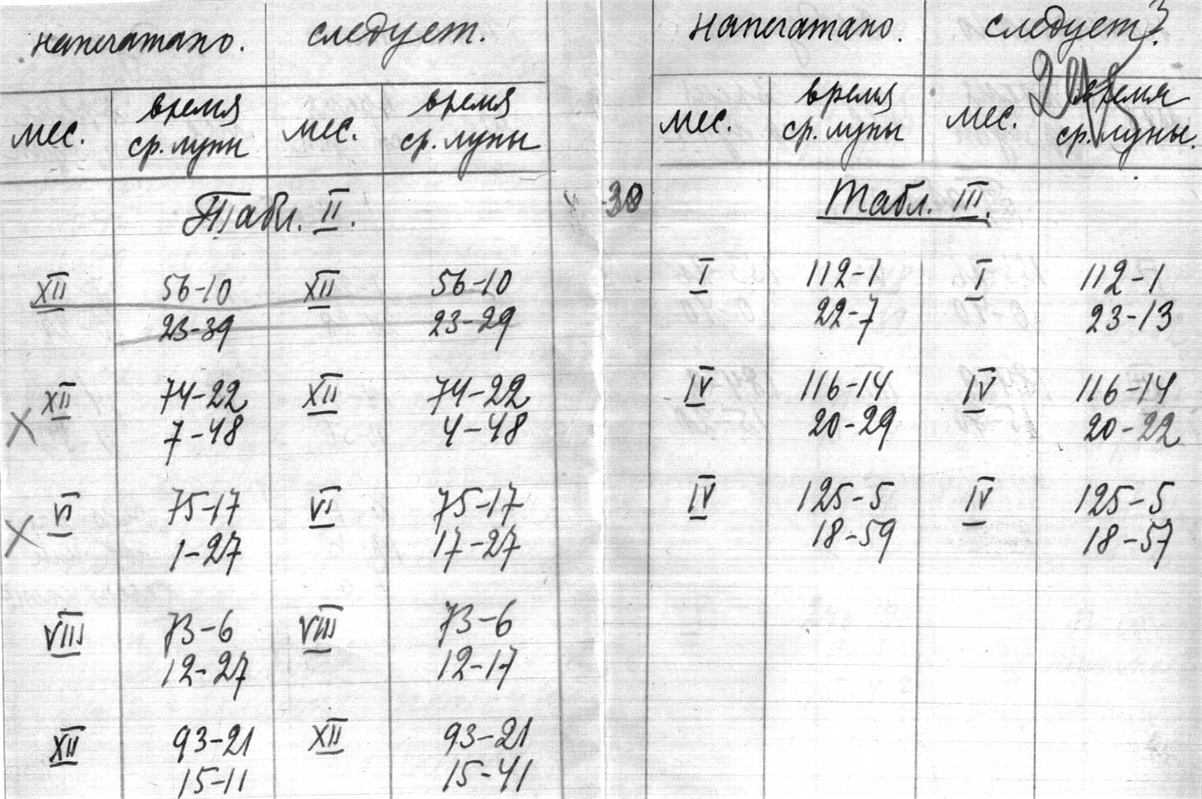 напечатано. следует.
мес. время ср. луны мес. время ср. луны
Табл. II.
XII 56-10 XII 56-10
23-39 23-29
XII 74-22 XII 74-22
X 7-48 4-48
VI 75-17 VI 75-17
X 1-27 17-27
VIII 73-6 VIII 73-6
12-27 12-17
XII 93-21 XII 93-21
15-11 15-41
напечатано. следует.
мес. время ср. луны мес. время ср. луны.
Табл. III.
I 112-1 I 112-1
22-7 23-13
IV 116-14 IV 116-14
20-29 20-22
IV 125-5 IV 125-5
18-59 18-57